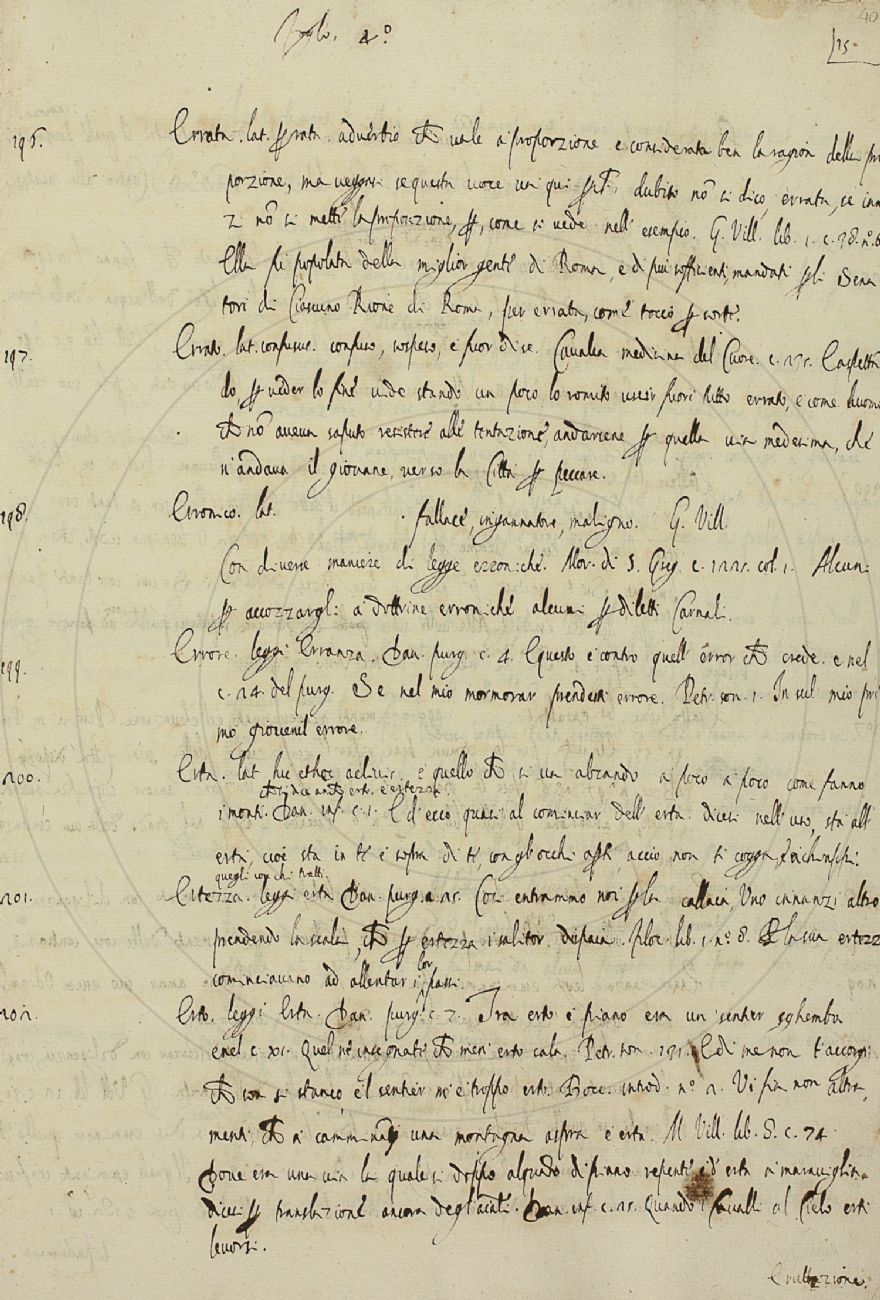 foglio. 4º
40
25
196. Errata. lat. ꝑ rata. adverbio che vale a proporzione e considerata ben la ragion della pro
porzione, ma veggasi se questa voce dubito nõ si dico, errata, se
2 nõ si mette la proporzione, ꝑ, come si vede nell' esempio. G. Vill. lib. 1. c. 38. nº. 6
Ella fu popolata della miglior gente di Roma, e di più sofficienti, mandati ꝑ li Sena
tori di Ciascuno Rione di Roma, per errata, com'è toccò ꝑ sorte.
197. Errato. lat. confusus. confuso, sospeso, e fuor di se. Cavalca medicina del Cuore. c. 175. E aspettan
do ꝑ veder lo fine vide stando un poco lo romito uscir fuori tutto errato, e come huomo
che nõ aveva saputo resistere alle tentazione, andarcene ꝑ quella via medesima, che
n'andava il giovane, verso la Città ꝑ peccare.
198. Erronico. lat. fallace, ingannatore, maligno. G. Vill.
Con diverse maniere di legge erroniche. Mor. di S. Greg. c. 1225. col. 1. Alcuni
ꝑ accozzargli a dottrine erroniche alcuni ꝑ diletti Carnali.
199. Errore. leggi Erranza. Dan. purg. c. 4. E questo e contro quell' error che crede. e nel
c. 24. del purg. Se nel mio mormorar prendesti errore. Petr. son. 1. In sul mio pri
mo giovenil errore.
200. Erta. lat. hic et hoc aclivis. è quello che si va alzando a poco a poco come fanno
che si dice anche erto. e ertezza
i monti. Dan. inf. c. 1. Ed ecco quasi al cominciar dell' erta. dicesi nell' uso, sta all'
erta, cioè sta in te e sopra di te, con gl'occhi aꝑti, acciò non ti cogga
quegli con chi tratti.
201. Ertezza. leggi erta Dan. purg. c. 25. Cosi entrammo noi ꝑ la callaia, Uno innanzi altro
prendendo la scala, che ꝑ ertezza i salitor dispaia. filoc. lib. 1. nº 8. E ꝑ la sua ertezza
cominciavano ad allentar i lor passi.
202. Erto. leggi Erta. Dan. purg. c. 7. Tra erto e piano era un sentier sghembo
e nel c. XI. Quel ne insegnate che men erto cala. Petr. son. 191. E di me non t'accorgi
che son si stanco e 'l sentier m'è troppo erto. Bocc. introd. nº. 2. Vi fia non altra,
menti, che a camminanti una montagna aspra e erta. M. Vill. lib. 8. c. 74.
Dove era una via la quale si doppo alquãto di piano repente ed erta a maraviglia.
dicesi ꝑ translazione ancora degl'acati. Dan. inf. c. 25. Quando i Cavalli al Cielo erti
levorsi.
Eruttazione.